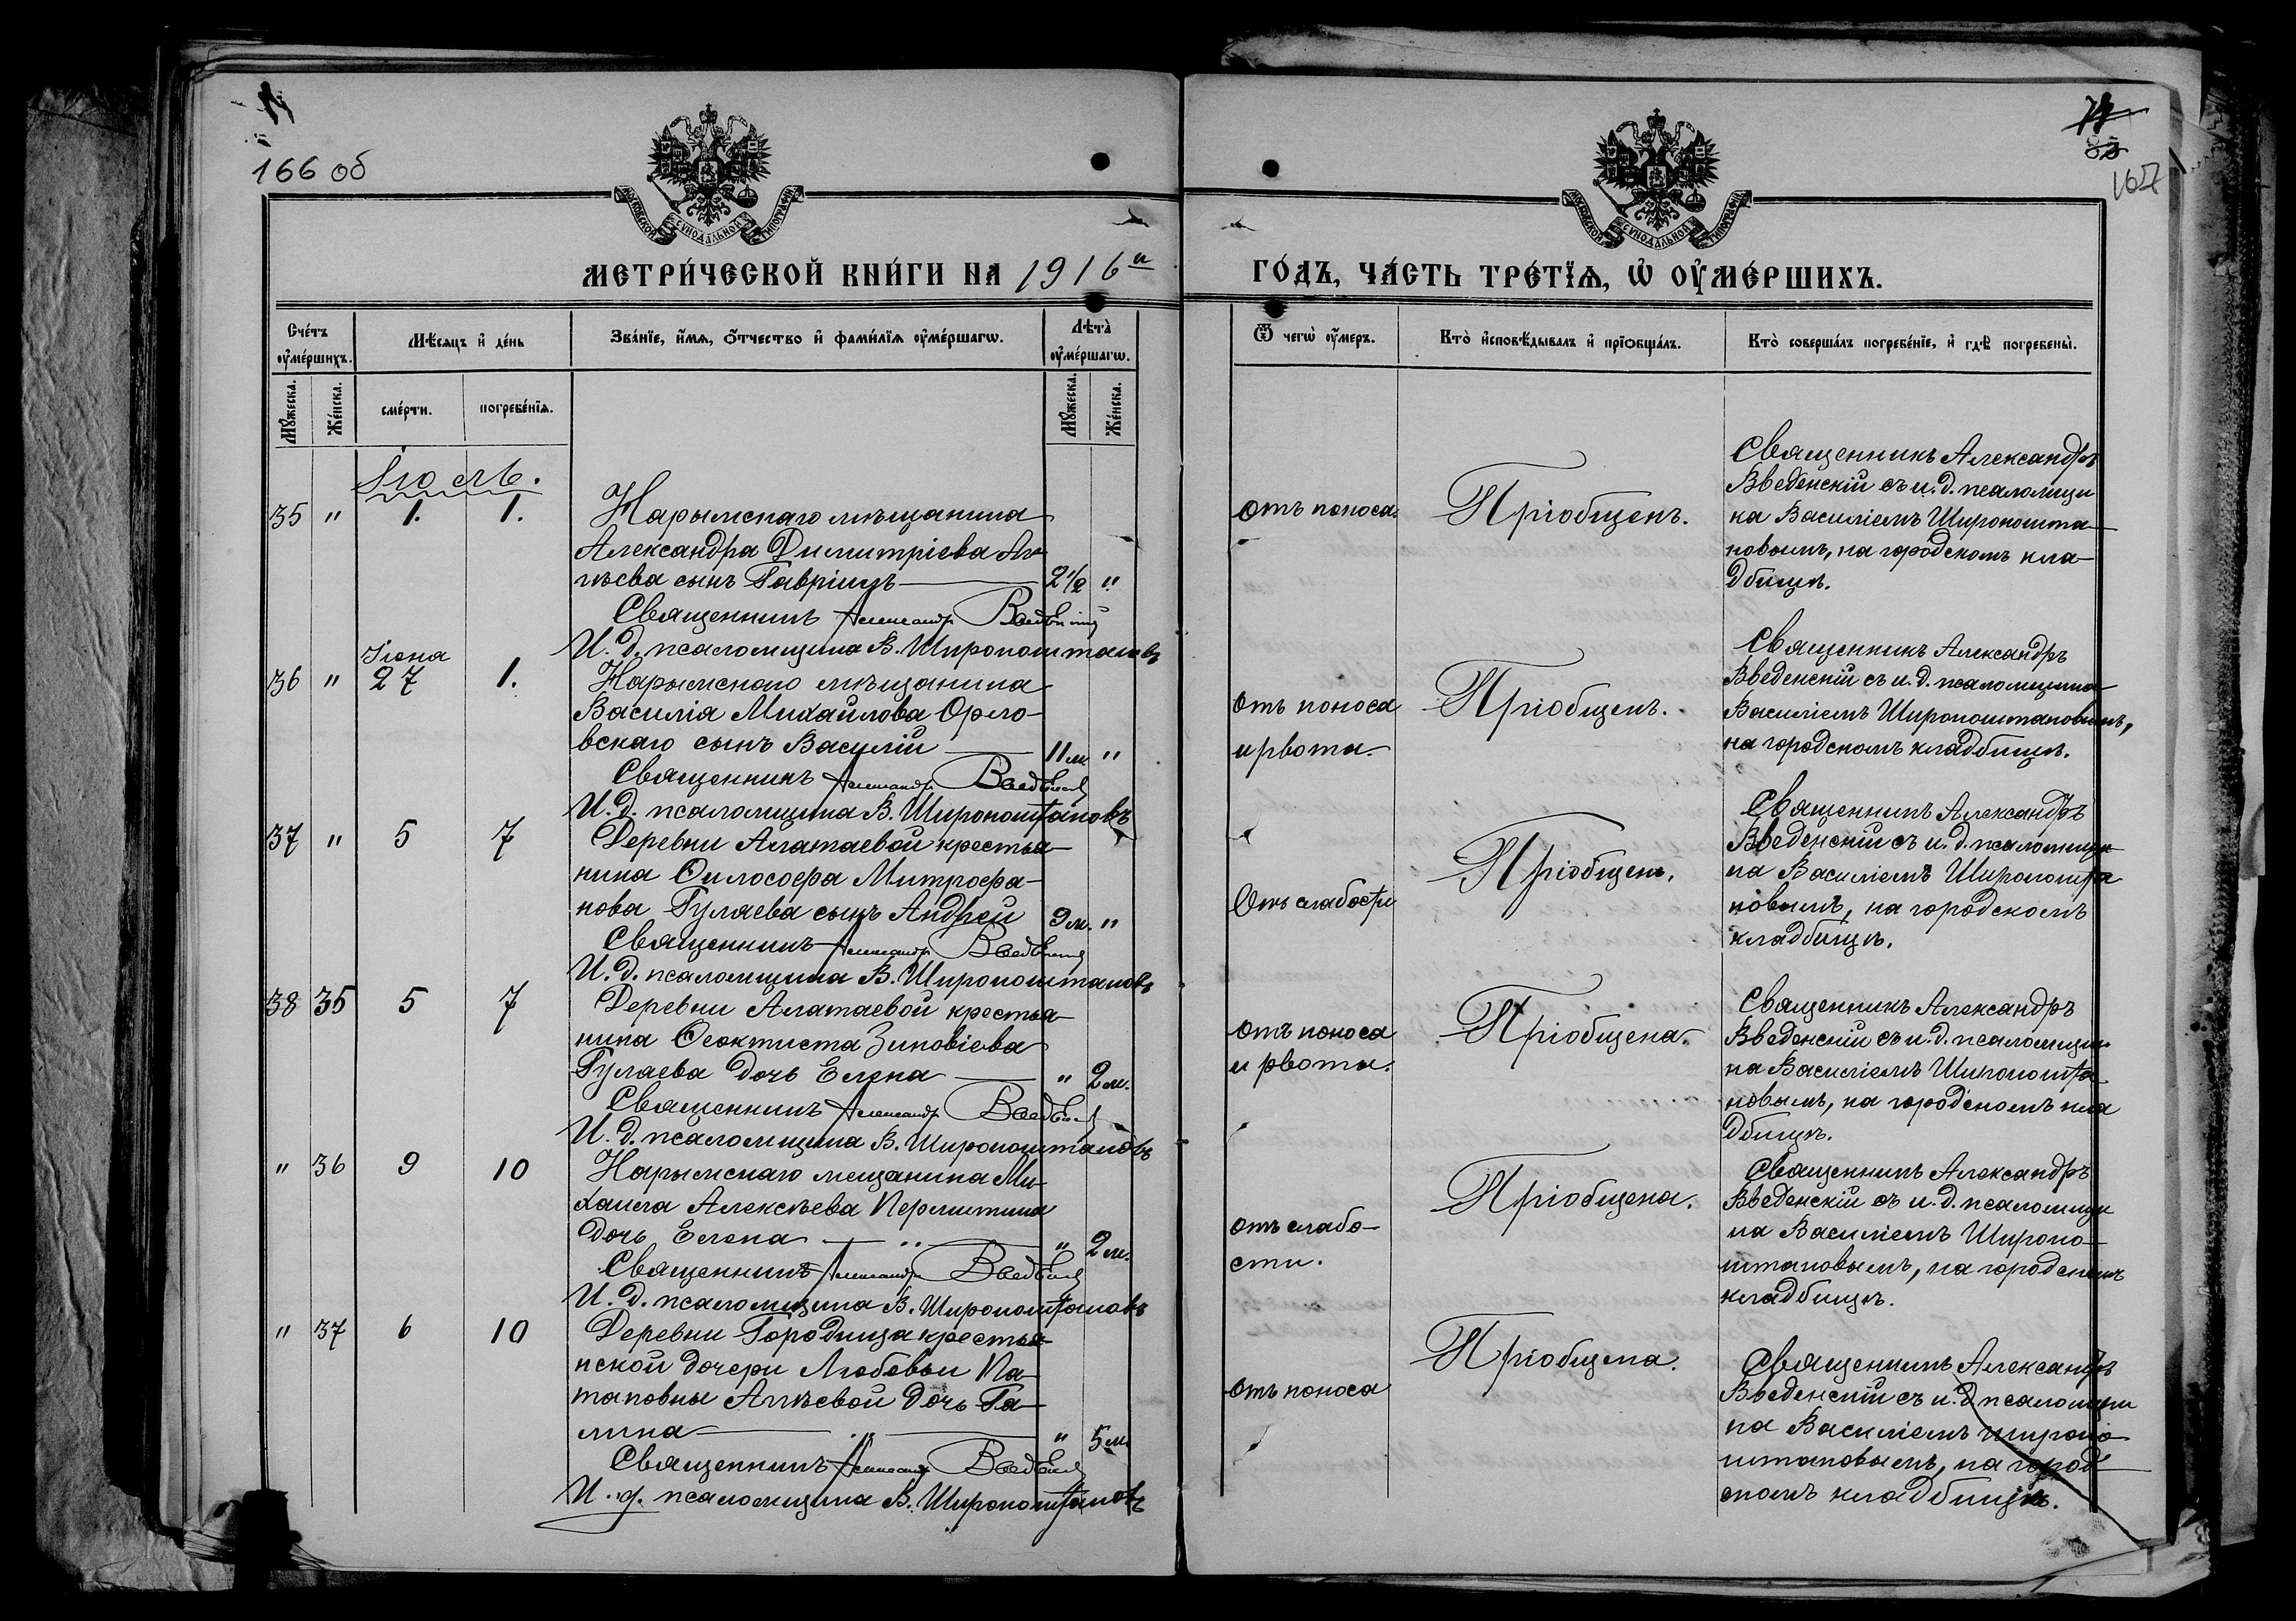 166 об
167
МОСКОВСКОЙ СУНОДАЛЬНОЙ ТИПОГРАФIИ
МОСКОВСКОЙ СУНОДАЛЬНОЙ ТИПОГРАФIИ
МЕТРИ́ЧЕСКОЙ КНИ́ГИ НА 1916й
ГО́ДЪ, ЧА́СТЬ ТРЕ́ТЇѦ, Ѡ҆ ОУ҆МЕ́РШИХЪ.
Сче́тъ оу҆ме́ршихъ.
Мѣ́сяцъ и҆ де́нь
Зва́нїе, и҆́мѧ, ѻ҆́тчество и҆ фами́лїѧ оу҆ме́ршагѡ.
Лѣта̀ оу҆ме́ршагѡ.
Ѿ чегѡ̀ оу҆́меръ.
Кто̀ и҆сповѣ́дывалъ и҆ прїѻбща́лъ.
Кто̀ соверша́лъ погребе́нїе, и҆ гдѣ̀ погребены̀.
Мꙋ́жеска.
Же́нска.
сме́рти.
погребе́нїѧ.
Мꙋ́жеска.
Же́нска.
Iюль.
35 " 1. 1.
Нарымскаго мѣщанина
Александра Димитрiева
сынъ Гаврiилъ 2½ "
Священникъ Александр Введенскiй
И. д. псаломщика В. Широкоштановъ
отъ поноса.
Прiобщенъ.
Священникъ Александръ
Введенскiй съ и. д. псаломщи
ка Василiемъ Широкошта-
новымъ, на городскомъ кла-
дбищѣ.
36 " Iюня 27 1.
Нарымскаго мѣщанина
Василiя Михайлова Орло-
вскаго сынъ Василiй 11 м. "
Священникъ Александр Введенскiй
И. д. псаломщика В. Широкоштановъ
отъ поноса
и рвоты
Прiобщенъ.
Священникъ Александръ
Введенскiй съ и. д. псаломщика
Василiемъ Широкоштановымъ,
на городскомъ кладбищѣ.
37 " 5 7
Деревни Алатаевой крестья-
нина Философа Митрофа-
нова Гуляева сынъ Андрей 9 м. "
Священникъ Александр Введенскiй
И. д. псаломщика В. Широкоштановъ
Отъ слабости
Прiобщенъ.
Священникъ Александръ
Введенскiй съ и. д. псаломщи
ка Василiемъ Широкошта
новымъ, на городскомъ
кладбищѣ.
38 35 5 7
Деревни Алатаевой крестья-
нина Феоктиста Зиновiева
Гуляева дочь Елена " 2 м.
Священникъ Александр Введенскiй
И. д. псаломщика В. Широкоштановъ
отъ поноса
и рвоты.
Прiобщена.
Священникъ Александръ
Введенскiй съ и. д. псаломщи
ка Василiемъ Широкошта
новымъ, на городскомъ кла
дбищѣ.
" 36 9 10
Нарымскаго мещанина Ми-
хаила Алексѣева Пермитина
дочь Елена " 2 м.
Священникъ Александр Введенскiй
И. д. псаломщика В. Широкоштановъ
отъ слабо-
сти.
Прiобщена.
Священникъ Александръ
Введенскiй съ и. д. псаломщи
ка Василiемъ Широко-
штановымъ, на городскомъ
кладбищѣ.
" 37 6 10
Деревни Городища крестья-
нской дочери Любовьи По-
таповны дочь Га-
лина " 5 м.
Священникъ Александр Введенскiй
И. д. псаломщика В. Широкоштановъ
отъ поноса
Прiобщена.
Священникъ Александръ
Введенскiй съ и. д. псаломщи
ка Василiемъ Широко
штановымъ, на город
скомъ кладбищѣ.